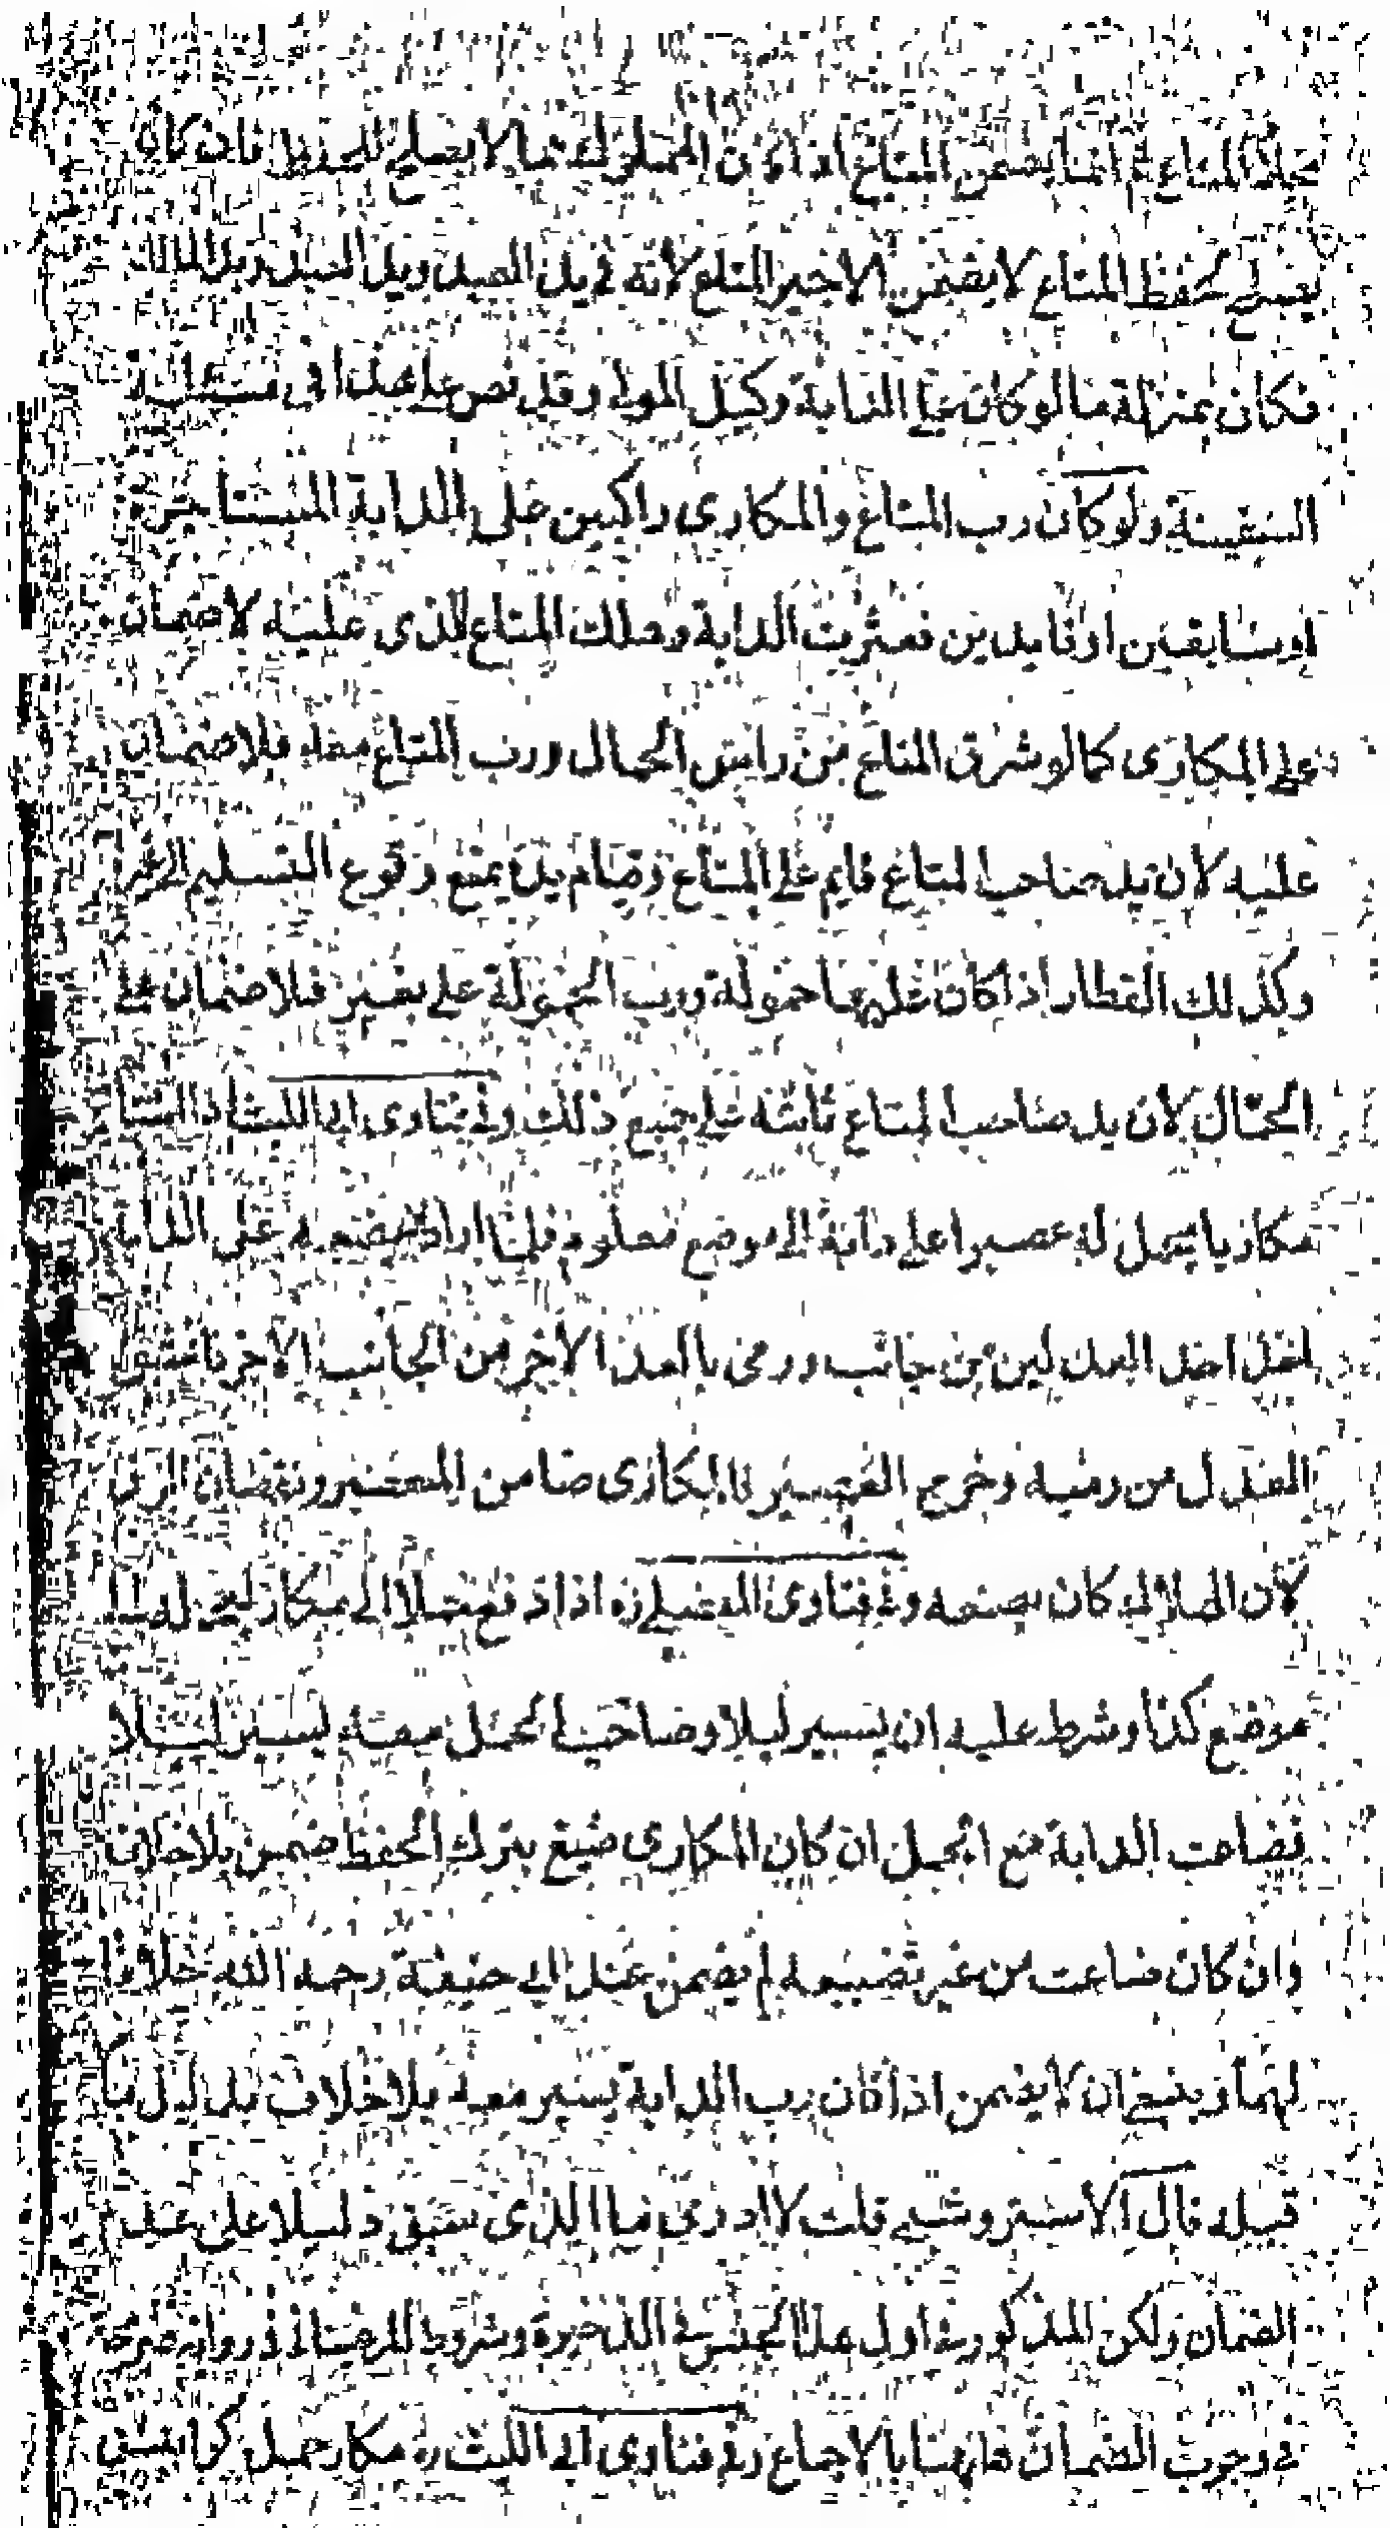 المتاع ثم انما يضمن المتاع اذا كان المملوك مما لا يصلح للحفظ فان كان
يصلح لحفظ المتاع لا يضمن الاجير المتاع لانه في يد العبد ويد العبد يد المالك
فكان بمنزلة ما لو كان على الدابة وكيل المولى وقد نص على هذا في مسئلة
السفينة ولو كان رب المتاع والمكارى راكبين على الدابة المستاجرة
او سايقين او قايدين فعثرت الدابة وهلك المتاع الذى عليه لا ضمان
على المكارى كما لو سرق المتاع من راس الحمال ورب المتاع معه فلا ضمان
عليه لان يد صاحب المتاع قايم على المتاع وقيام يده يمنع وقوع التسليم الى غيره
وكذلك القطار اذا كان عليها حمولة ورب الحمولة على بعير فلا ضمان على
الحمال لان يد صاحب المتاع ثابتة على جميع ذلك وفي فتاوى ابى الليث اذا استاجر
مكاريا يحمل له عصيرا على دابة الى موضع معلوم فلما اراد ان يضعه على الدابة
اخذ احد العدلين من جانب ورمى بالعدل الاخر من الجانب الاخر فانشق
العدل من رميه وخرج العصير فالمكارى ضامن العصير ونقصان الزق
لان الهلاك كان بصنعه وفي فتاوى الفضلى ره اذا دفع حملا الى مكار ليحمله الى
موضع كذا وشرط عليه ان يسير ليلا وصاحب الحمل معه يسير ليلا
فضاعت الدابة مع الحمل ان كان المكارى ضيع بترك الحفظ ضمن بلا خلاف
وان كان ضاعت من غير تضييعه لم يضمن عند ابى حنيفة رحمه الله خلافا
لهما وينبغى ان لا يضمن اذا كان رب الدابة يسير معه بلا خلاف بدليل ما
قبله قال الاستروشنى قلت لا ادرى ما الذى سبق دليلا على عدم
الضمان ولكن المذكور في اول هذا الجنس في الذخيرة وشروط المرغينانى رواية صريحة
في وجوب الضمان هاهنا بالاجماع وفي فتاوى ابى الليث ره مكار حمل كرابيس